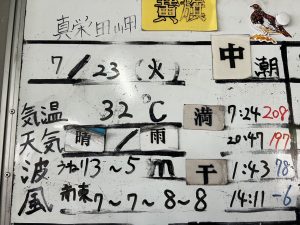 真栄田岬 黄旗
7/23(火) 中潮
気温 32℃ 満 7:24 208
天気 晴/雨 20:47 197
波 うねり3~5m 干 1:43 78
風 南東7~7~8~8 14:11 -6